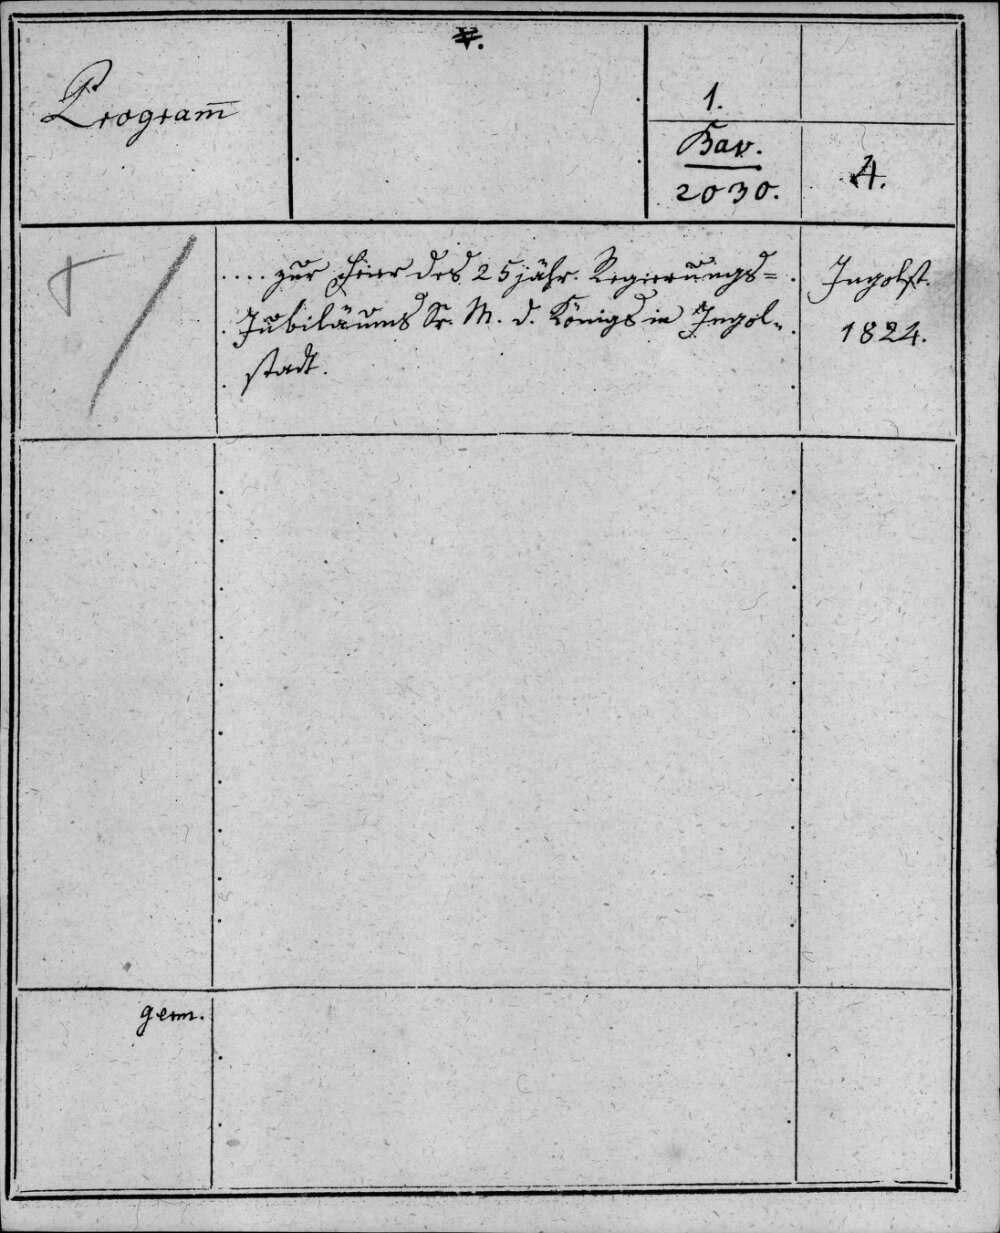 Program̅
1.
Bav.
2030.
4.
.... zur Feier des 25jähr. Regierungs=
Jubiläums Sr. M. d. Königs in Ingol-
stadt.
Ingolst.
1824.
germ.